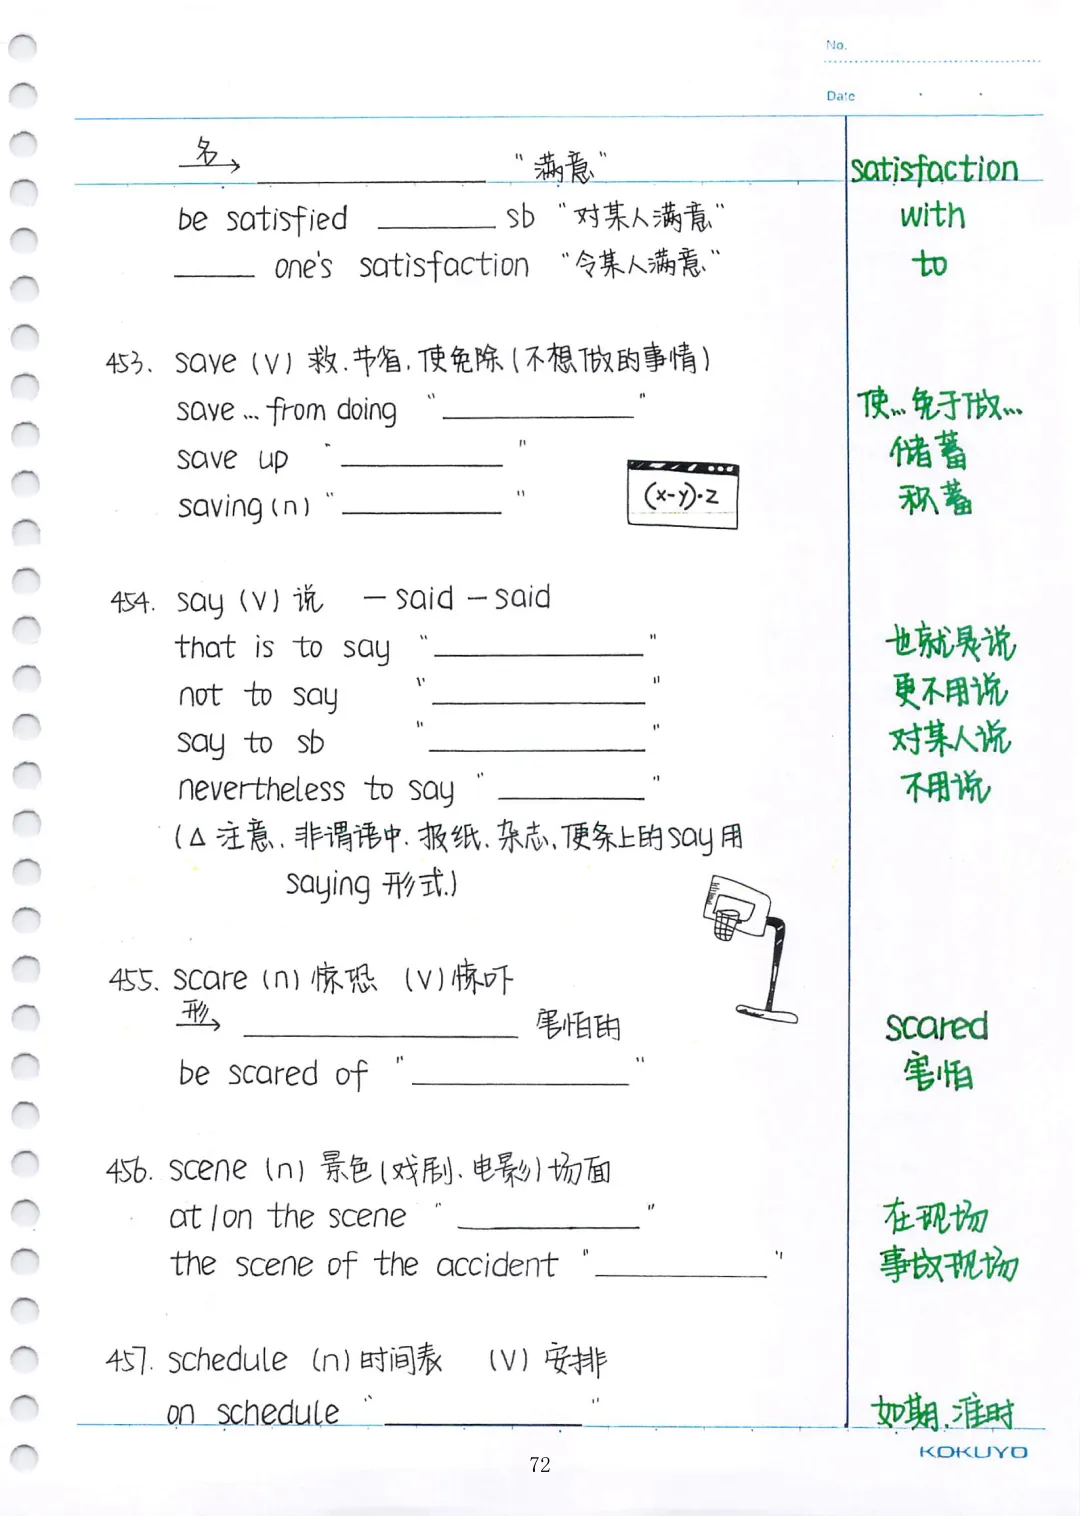 No.
Date
名→ ________ "满意" satisfaction
be satisfied ________ sb "对某人满意" with
________ one's satisfaction "令某人满意" to
453. save (v) 救、节省，使免除(不想做的事情)
save ... from doing "________" 使...免于做...
save up "________" 储蓄
saving (n) "________" 积蓄
(x-y)·z
454. say (v) 说 — said — said
that is to say "________" 也就是说
not to say "________" 更不用说
say to sb "________" 对某人说
nevertheless to say "________" 不用说
(△ 注意、非谓语中、报纸、杂志、便条上的 say 用
saying 形式.)
455. scare (n) 惊恐 (v) 惊吓
形→ ________ 害怕的 scared
be scared of "________" 害怕
456. scene (n) 景色(戏剧、电影)场面
at/on the scene "________" 在现场
the scene of the accident "________" 事故现场
457. schedule (n) 时间表 (v) 安排
on schedule "________" 如期、准时
KOKUYO
72